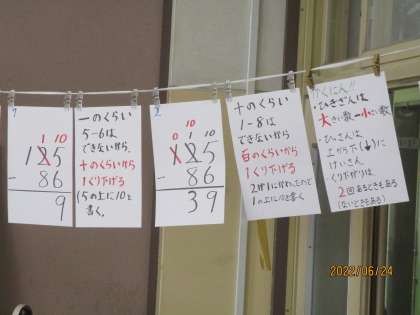 1 10
125
- 86
9
一のくらい
5-6は
できないから、
十のくらいから
1くり下げる
(5の上に10と
書く。
2
0 10
125
- 86
39
十のくらい
1-8は
できないから
百のくらいから
1くり下げる
2が1にかわったので
1の上に10と書く
かくにん!!
・ひきざんは
大きい数-小さい数
・ひっさんは
上から下(↓)に
けいさん
くり下がりは
2回あるときもある
(ないときもある)
2022/06/24